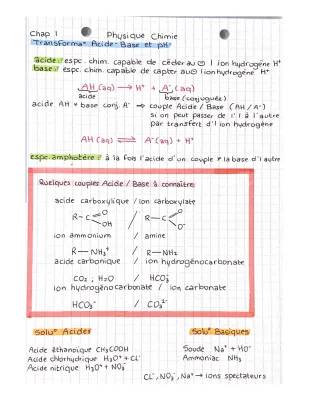 Chap 1
Physique Chimie
Transforma° Acide-Base et pH
acide: espc. chim. capable de céder au ⊖ 1 ion hydrogène H⁺
base: espc. chim. capable de capter au⊖ 1 ion hydrogène H⁺
AH (aq) → H⁺ + A⁻ (aq)
acide base (conjuguée)
acide AH * base conj. A⁻ → couple Acide / Base (AH / A⁻)
si on peut passer de l'1 à l'autre
par transfert d'1 ion hydrogène
AH (aq) ⇌ A⁻(aq) + H⁺
espc. amphotère: à la fois l'acide d'un couple * la base d'1 autre
Quelques couples Acide / Base à connaître
acide carboxylique / ion carboxylate
R-C=O OH / R-C=O O⁻
ion ammonium / amine
R-NH₃⁺ / R-NH₂
acide carbonique / ion hydrogénocarbonate
CO₂ ; H₂O / HCO₃⁻
ion hydrogénocarbonate / ion carbonate
HCO₃⁻ / CO₃²⁻
Solu° Acides
Solu° Basiques
Acide éthanoïque CH₃COOH
Soude Na⁺ + HO⁻
Acide chlorhydrique H₃O⁺ + Cl⁻
Ammoniac NH₃
Acide nitrique H₃O⁺ + NO₃⁻
Cl⁻, NO₃⁻, Na⁺ → ions spectateurs